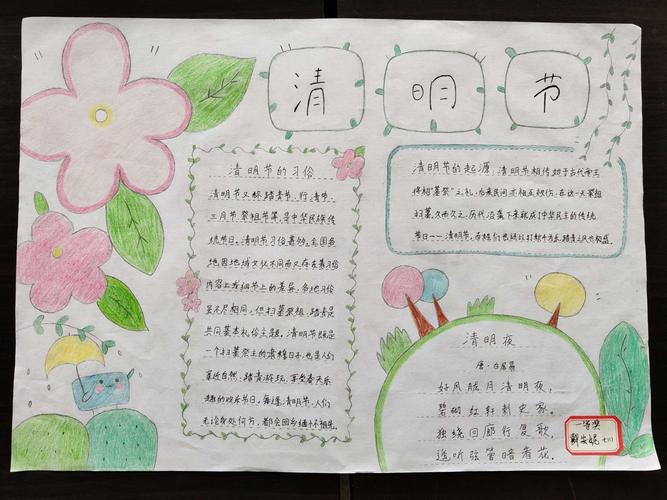 清明节
清明节的习俗
清明节又称踏青节、行清节、
三月节祭祖节等,是中华民族传
统节日。清明节习俗善功,全国各
地因地域文化不同而又存在着习俗
内容上或细节上的差异,各地习俗
虽不尽相同,但扫墓祭祖、踏青是
共同基本礼俗主题。清明节既是
一个扫墓祭主的肃穆日子,也是人们
亲近自然、踏青游玩、享受春天乐
趣的欢乐节日。每逢清明节,人们
无论身处何方,都会回乡
清明节的起源:清明节相传始于古代帝王
将相"墓祭"之礼,后来民间亦相互效仿,在这一天祭祖
扫墓,久而久之,历代沿袭下来就成了中华民主的传统
节日——清明节。
清明夜
唐·白居易
好风胧月清明夜,
碧砌红轩刺史家。
独绕回廊行复歇,
遥听弦管暗看花。
一等奖
七(1)